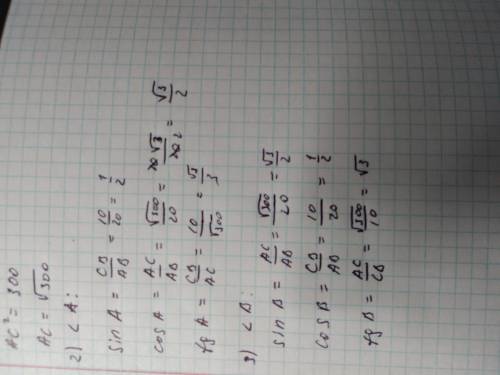 AC² = 300
AC = √300
2) < A:
sin A = CB/AB = 10/20 = 1/2
cos A = AC/AB = √300/20 = 10√3/20 2 = √3/2
tg A = CB/AC = 10/√300 = √3/3
3) < B:
sin B = AC/AB = √300/20 = √3/2
cos B = CB/AB = 10/20 = 1/2
tg B = AC/CB = √300/10 = √3